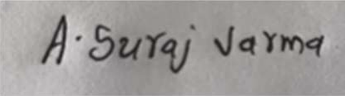 A. Suraj Varma